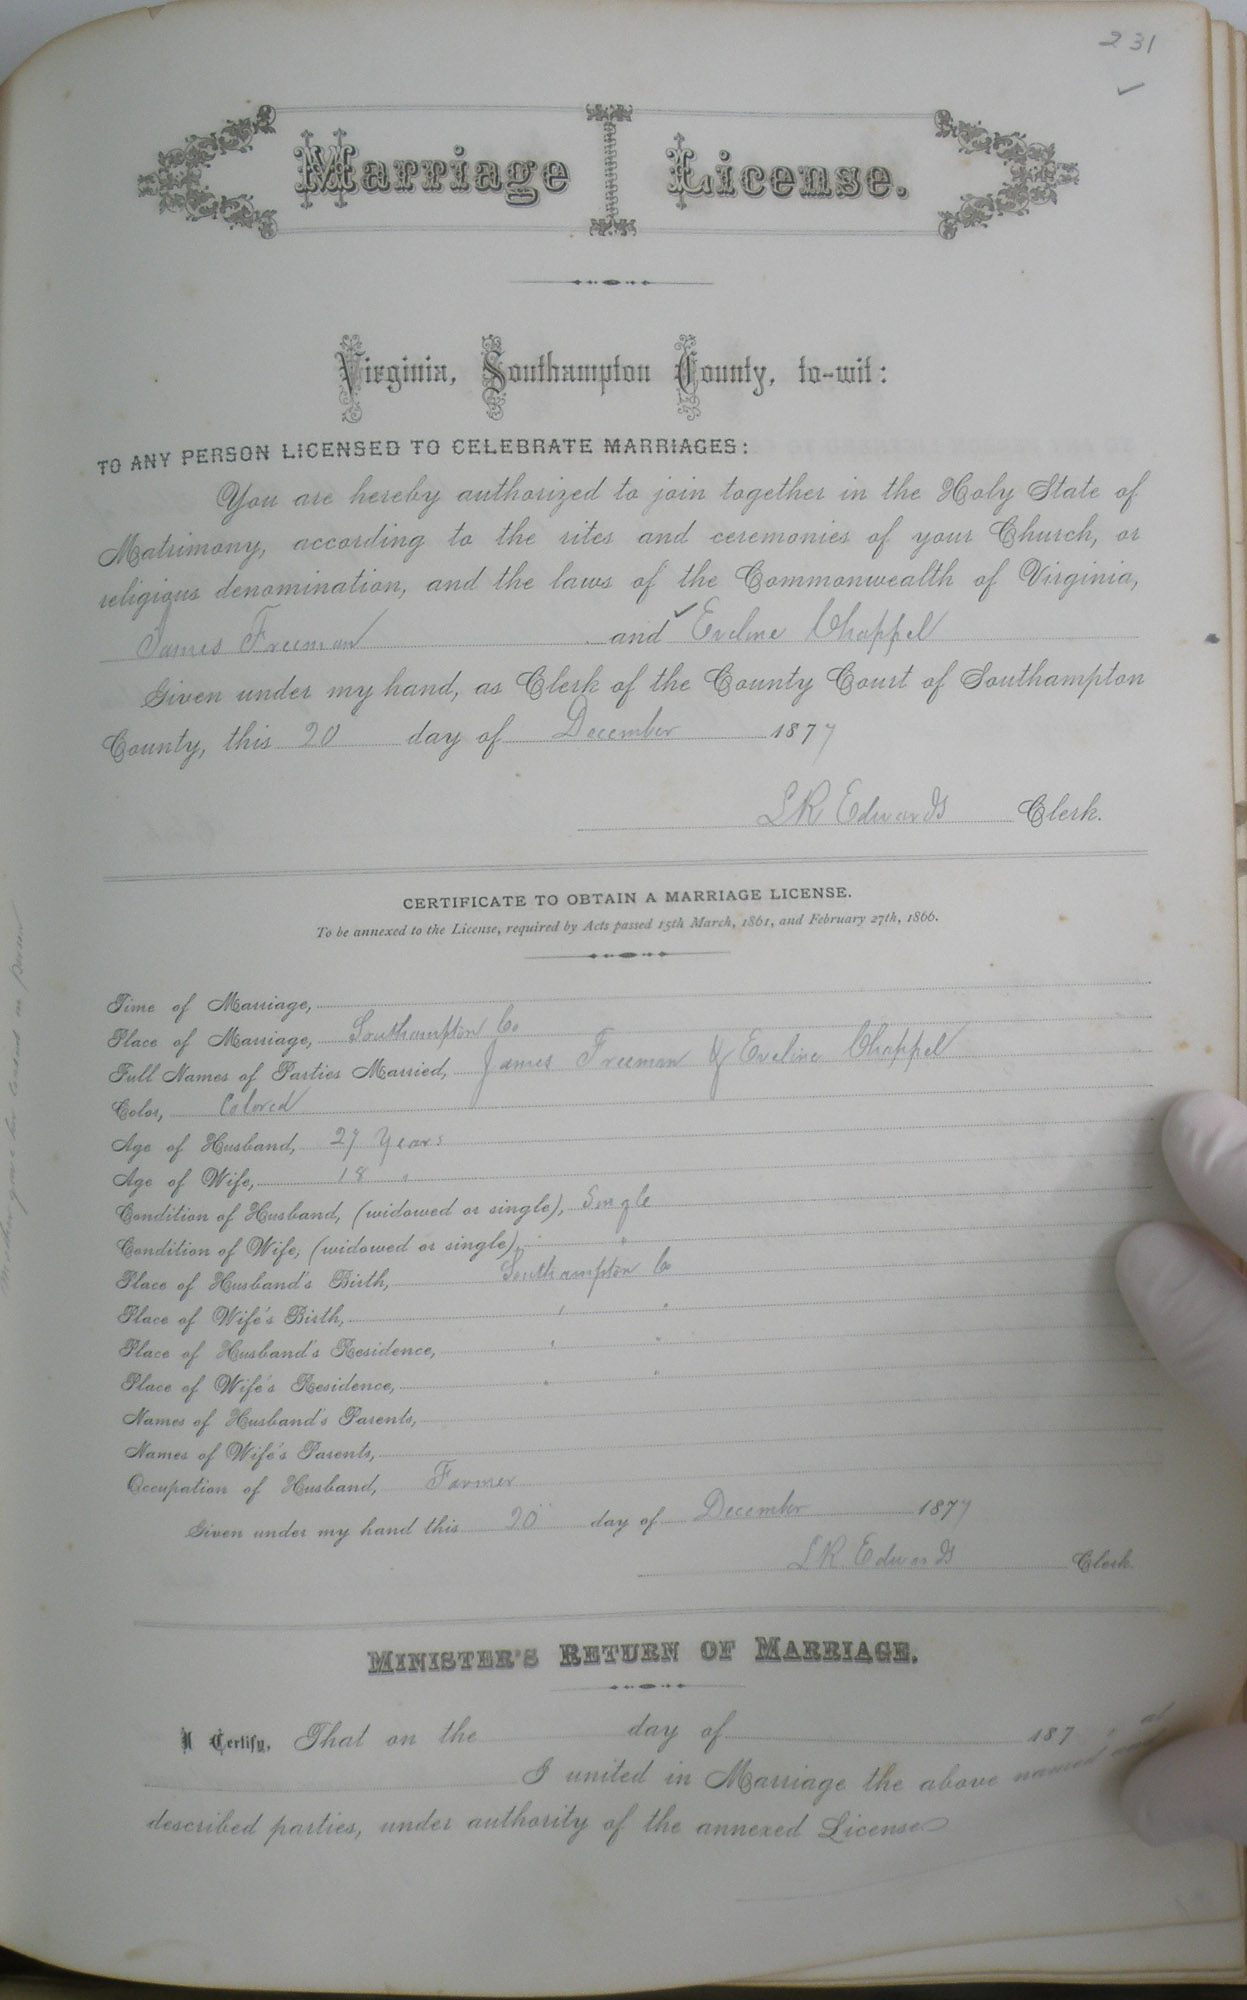 231
Marriage License.
Virginia, Southampton County, to-wit:
TO ANY PERSON LICENSED TO CELEBRATE MARRIAGES:
You are hereby authorized to join together in the Holy State of
Matrimony, according to the rites and ceremonies of your Church, or
religious denomination, and the laws of the Commonwealth of Virginia,
James Freeman and Eveline Chappel
Given under my hand, as Clerk of the County Court of Southampton
County, this 20 day of December 1877
LR Edwards Clerk.
CERTIFICATE TO OBTAIN A MARRIAGE LICENSE.
To be annexed to the License, required by Acts passed 15th March, 1861, and February 27th, 1866.
Time of Marriage,
Place of Marriage, Southampton Co
Full Names of Parties Married, James Freeman & Eveline Chappel
Color, Colored
Age of Husband, 27 Years
Age of Wife, 18 "
Condition of Husband, (widowed or single), Single
Condition of Wife, (widowed or single), "
Place of Husband's Birth, Southampton Co
Place of Wife's Birth, " "
Place of Husband's Residence, " "
Place of Wife's Residence, " "
Names of Husband's Parents,
Names of Wife's Parents,
Occupation of Husband, Farmer
Given under my hand this 20 day of December 1877
LR Edwards Clerk.
MINISTER'S RETURN OF MARRIAGE.
I Certify, That on the day of 187 , at
I united in Marriage the above named and
described parties, under authority of the annexed License
Mother gave her consent in person